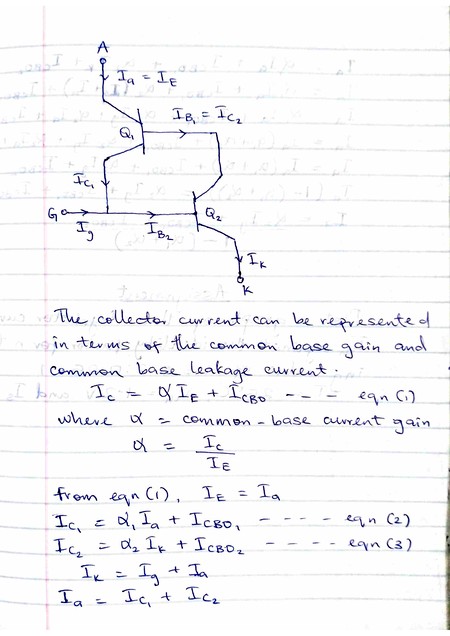 A
Iₐ = I_E
I_B₁ = I_C₂
Q₁
I_C₁
G
Q₂
I_g
I_B₂
I_K
K
The collector current can be represented
in terms of the common base gain and
common base leakage current.
I_C = αI_E + I_CBO --- eqn (1)
where α = common-base current gain
α = I_C / I_E
from eqn (1), I_E = Iₐ
I_C₁ = α₁Iₐ + I_CBO₁ ---- eqn (2)
I_C₂ = α₂I_K + I_CBO₂ ---- eqn (3)
I_K = I_g + Iₐ
Iₐ = I_C₁ + I_C₂